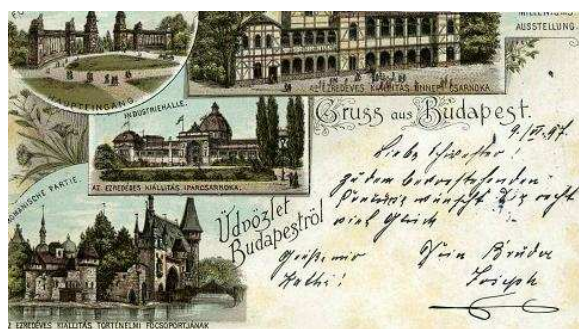 MILLENIUMS
AUSSTELLUNG.
HAUPTEINGANG
AZ EZREDÉVES KIÁLLITÁS ÜNNEPI CSARNOKA.
Gruss aus Budapest.
INDUSTRIEHALLE.
AZ EZREDÉVES KIÁLLITÁS IPARCSARNOKA.
ROMANISCHE PARTIE.
Üdvözlet
Budapestről
EZREDÉVES KIÁLLITÁS TÖRTÉNELMI FŐCSOPORTJÁNAK
97.
Liebe Schwester!
zu dem bevorstehenden
wünscht Dir recht
viel Glück
Grüße mir Dein Bruder
Kathi! Joseph